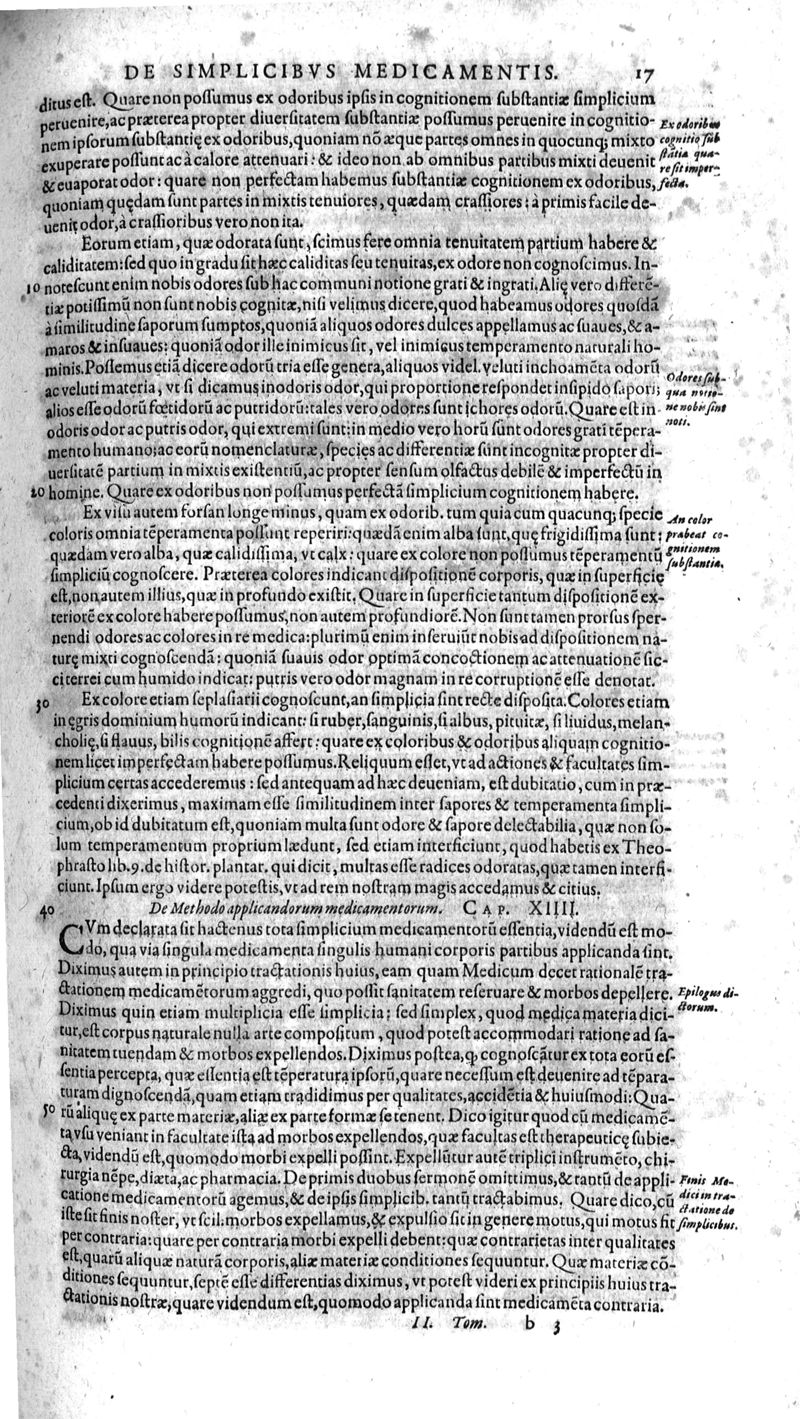 DE SIMPLICIBVS MEDICAMENTIS. 17
ditus est. Quare non possumus ex odoribus ipsis in cognitionem substantiæ simplicium
peruenire, ac præterea propter diuersitatem substantiæ possumus peruenire in cognitio-
nem ipsorum substantię ex odoribus, quoniam nõ æque partes omnes in quocunq; mixto
exuperare possunt ac à calore attenuari: & ideo non ab omnibus partibus mixti deuenit
& euaporat odor: quare non perfectam habemus substantiæ cognitionem ex odoribus,
quoniam quędam sunt partes in mixtis tenuiores, quædam crassiores: à primis facile de-
uenit odor, à crassioribus vero non ita.
Ex odoribus
cognitio sub
stãtiæ qua-
re sit imper-
fecta.
Eorum etiam, quæ odorata sunt, scimus fere omnia tenuitatem partium habere &
caliditatem: sed quo in gradu sit hæc caliditas seu tenuitas, ex odore non cognoscimus. In-
10 notescunt enim nobis odores sub hac communi notione grati & ingrati. Alię vero differẽ-
tiæ potissimũ non sunt nobis cognitæ, nisi velimus dicere, quod habeamus odores quosdã
à similitudine saporum sumptos, quoniã aliquos odores dulces appellamus ac suaues, & a-
maros & insuaues: quoniã odor ille inimicus sit, vel inimicus temperamento naturali ho-
minis. Possemus etiã dicere odorũ tria esse genera, aliquos videl. veluti inchoamẽta odorũ
ac veluti materia, vt si dicamus inodoris odor, qui proportione respondet insipido sapori;
alios esse odorũ fœtidorũ ac putridorũ: tales vero odores sunt ichores odorũ. Quare est in-
odoris odor ac putris odor, qui extremi sunt: in medio vero horũ sunt odores grati tẽpera-
mento humano; ac eorũ nomenclaturæ, species ac differentiæ sunt incognitæ propter di-
uersitatẽ partium in mixtis existentiũ, ac propter sensum olfactus debilẽ & imperfectũ in
20 homine. Quare ex odoribus non possumus perfectã simplicium cognitionem habere.
Odores sub-
qua notio-
ne nobis sint
noti.
Ex visu autem forsan longe minus, quam ex odorib. tum quia cum quacunq; specie
coloris omnia tẽperamenta possunt reperiri: quædã enim alba sunt, quę frigidissima sunt;
quædam vero alba, quæ calidissima, vt calx: quare ex colore non possumus tẽperamentũ
simpliciũ cognoscere. Præterea colores indicant dispositionẽ corporis, quæ in superficię
est, non autem illius, quæ in profundo existit. Quare in superficie tantum dispositionẽ ex-
teriorẽ ex colore habere possumus, non autem profundiorẽ. Non sunt tamen prorsus sper-
nendi odores ac colores in re medica: plurimũ enim inseruiũt nobis ad dispositionem na-
turę mixti cognoscendã: quoniã suauis odor optimã concoctionem ac attenuationẽ sic-
ci terrei cum humido indicat: putris vero odor magnam in re corruptionẽ esse denotat.
An color
præbeat co-
gnitionem
substantiæ.
30 Ex colore etiam seplasiarii cognoscunt, an simplicia sint recte disposita. Colores etiam
in ęgris dominium humorũ indicant: si ruber, sanguinis, si albus, pituitæ, si liuidus, melan-
cholię, si flauus, bilis cognitionẽ affert: quare ex coloribus & odoribus aliquam cognitio-
nem licet imperfectam habere possumus. Reliquum esset, vt ad actiones & facultates sim-
plicium certas accederemus: sed antequam ad hæc deueniam, est dubitatio, cum in præ-
cedenti dixerimus, maximam esse similitudinem inter sapores & temperamenta simpli-
cium, ob id dubitatum est, quoniam multa sunt odore & sapore delectabilia, quæ non so-
lum temperamentum proprium lædunt, sed etiam interficiunt, quod habetis ex Theo-
phrasto lib. 9. de histor. plantar. qui dicit, multas esse radices odoratas, quæ tamen interfi-
ciunt. Ipsum ergo videre potestis, vt ad rem nostram magis accedamus & citius.
40 De Methodo applicandorum medicamentorum. CAP. XIIII.
CVm declarata sit hactenus tota simplicium medicamentorũ essentia, videndũ est mo-
do, qua via singula medicamenta singulis humani corporis partibus applicanda sint.
Diximus autem in principio tractationis huius, eam quam Medicum decet rationalẽ tra-
ctationem medicamẽtorum aggredi, quo possit sanitatem reseruare & morbos depellere.
Diximus quin etiam multiplicia esse simplicia: sed simplex, quod medica materia dici-
tur, est corpus naturale nulla arte compositum, quod potest accommodari ratione ad sa-
nitatem tuendam & morbos expellendos. Diximus postea, ꝙ cognoscãtur ex tota eorũ es-
sentia percepta, quæ essentia est tẽperatura ipsorũ, quare necessum est deuenire ad tẽpara-
turam dignoscendã, quam etiam tradidimus per qualitates, accidẽtia & huiusmodi: Qua-
50 rũ aliquę ex parte materiæ, aliæ ex parte formæ se tenent. Dico igitur quod cũ medicamẽ-
ta vsu veniant in facultate ista ad morbos expellendos, quæ facultas est therapeuticę subie-
cta, videndũ est, quomodo morbi expelli possint. Expellũtur autẽ triplici instrumẽto, chi-
rurgia nẽpe, diæta, ac pharmacia. De primis duobus sermonẽ omittimus, & tantũ de appli-
catione medicamentorũ agemus, & de ipsis simplicib. tantũ tractabimus. Quare dico, cũ
iste sit finis noster, vt scil. morbos expellamus, & expulsio sit in genere motus, qui motus fit
per contraria: quare per contraria morbi expelli debent: quæ contrarietas inter qualitates
est, quarũ aliquæ naturã corporis, aliæ materiæ conditiones sequuntur. Quæ materiæ cõ-
ditiones sequuntur, septẽ esse differentias diximus, vt potest videri ex principiis huius tra-
ctationis nostræ; quare videndum est, quomodo applicanda sint medicamẽta contraria.
Epilogus di-
ctorum.
Finis Me-
dici in tra-
ctatione de
simplicibus.
II. Tom. b 3